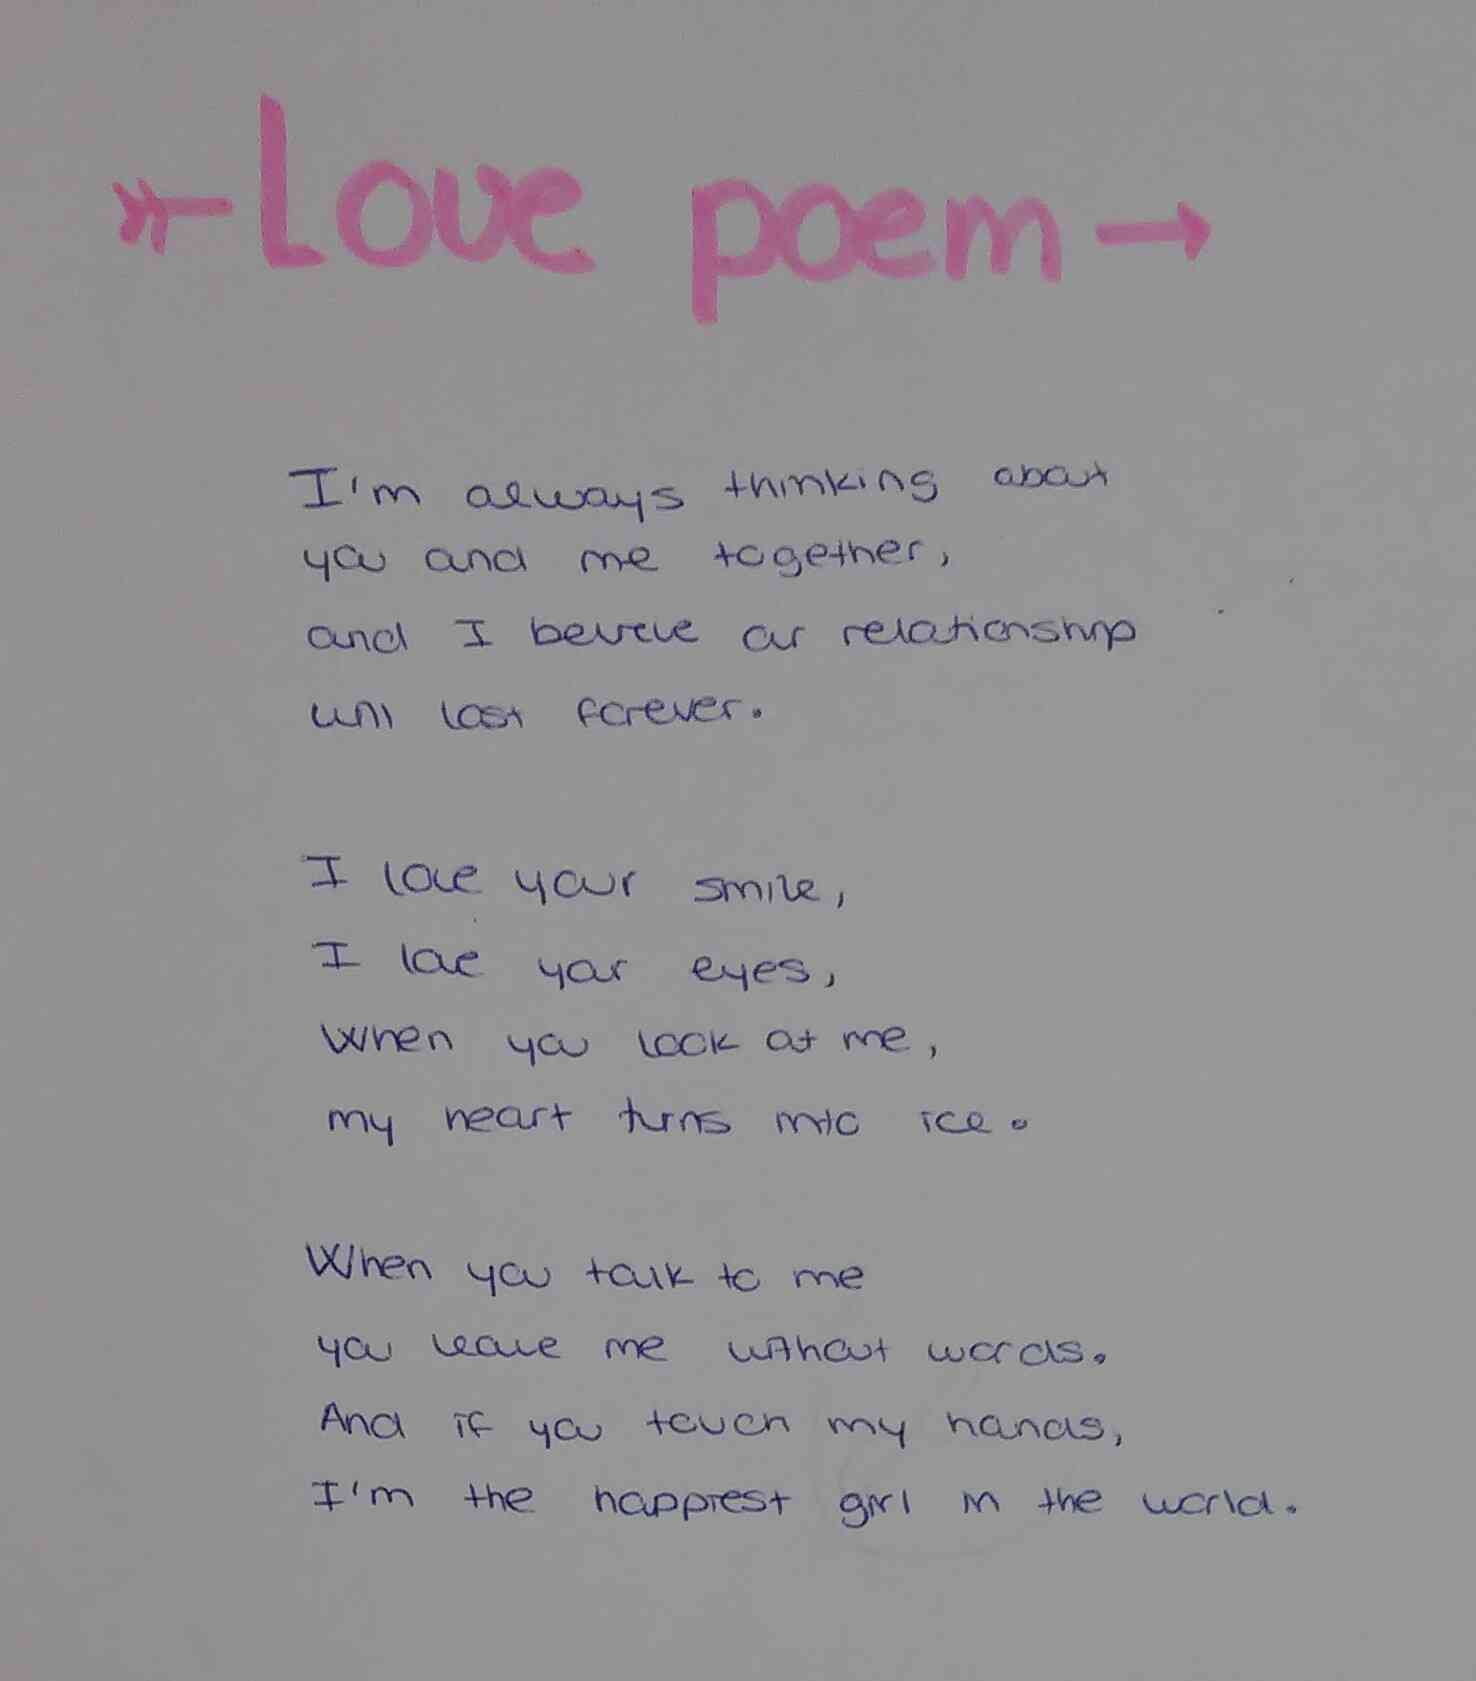 Love poem
I'm always thinking about
you and me together,
and I believe our relationship
will last forever.
I love your smile,
I love your eyes,
When you look at me,
my heart turns into ice.
When you talk to me
you leave me without words.
And if you touch my hands,
I'm the happiest girl in the world.